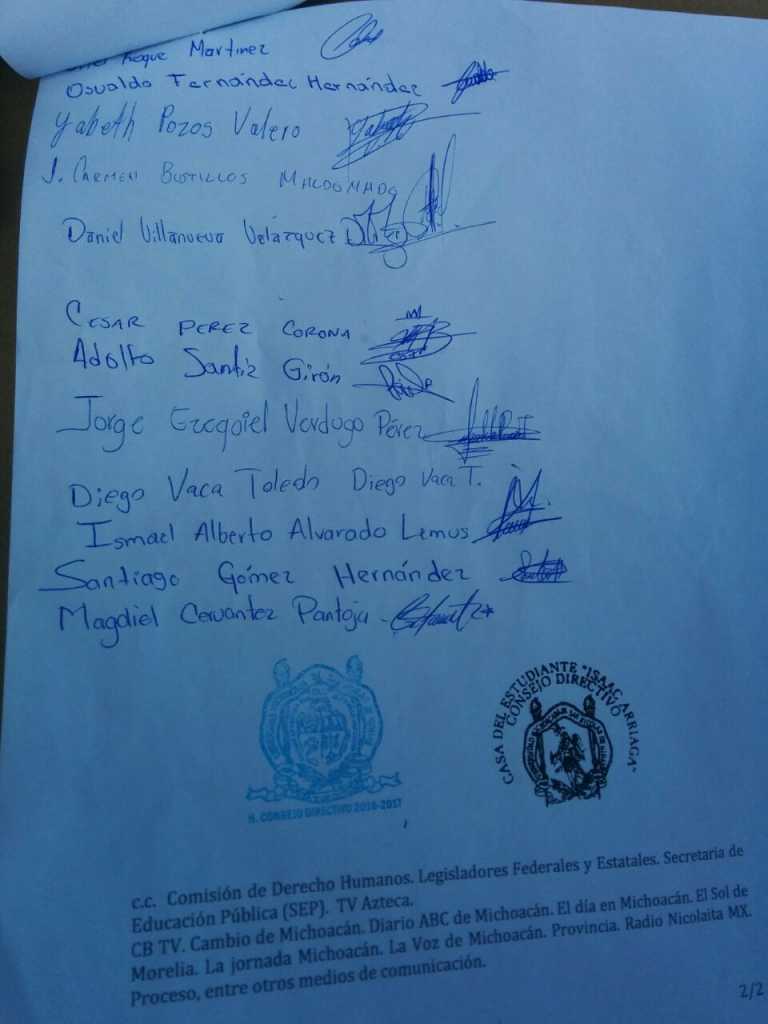 Roque Martinez
Osvaldo Fernández Hernández
Yabeth Pozos Valero
J. CARMEN BUSTILLOS MALDONADO
Daniel Villanueva Velázquez
CESAR PEREZ CORONA
Adolfo Santiz Girón
Jorge Ezequiel Verdugo Pérez
Diego Vaca Toledo Diego Vaca T.
Ismael Alberto Alvarado Lemus
Santiago Gómez Hernández
Magdiel Cervantez Pantoja
CASA DEL ESTUDIANTE "ISAAC ARRIAGA"
CONSEJO DIRECTIVO
H. CONSEJO DIRECTIVO 2016-2017
c.c. Comisión de Derecho Humanos. Legisladores Federales y Estatales. Secretaria de
Educación Pública (SEP). TV Azteca.
CB TV. Cambio de Michoacán. Diario ABC de Michoacán. El día en Michoacán. El Sol de
Morelia. La jornada Michoacán. La Voz de Michoacán. Provincia. Radio Nicolaita MX.
Proceso, entre otros medios de comunicación.
2/2